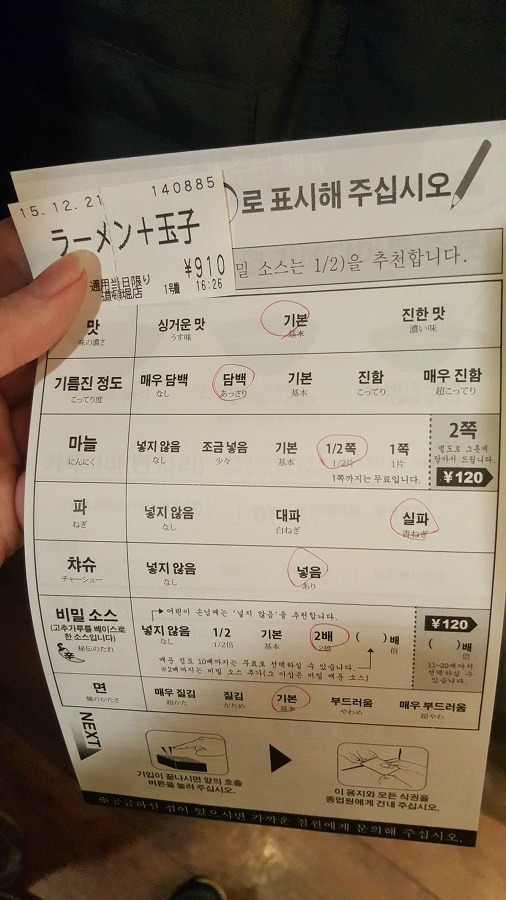 15.12.21 140885
ラーメン+玉子
¥910
通用当日限り
1号機 16:26
로 표시해 주십시오
밀 소스는 1/2)을 추천합니다.
맛 싱거운 맛 기본 진한 맛
味の濃さ うす味 基本 濃い味
기름진 정도 매우 담백 담백 기본 진함 매우 진함
こってり度 なし あっさり 基本 こってり 超こってり
마늘 넣지 않음 조금 넣음 기본 1/2쪽 1쪽
にんにく なし 少々 基本 1/2片 1片
1쪽까지는 무료입니다.
2쪽
별도로 그릇에
담아서 드립니다.
¥120
파 넣지 않음 대파 실파
ねぎ なし 白ねぎ 青ねぎ
챠슈 넣지 않음 넣음
チャーシュー なし あり
비밀 소스
(고추가루를 베이스로
한 소스입니다)
秘伝のたれ
辛
어린이 손님께는 '넣지 않음'을 추천합니다.
넣지 않음 1/2 기본 2배 ( )배
なし 1/2倍 基本 2倍 倍
매운 정도 10배까지는 무료로 선택하실 수 있습니다.
※2배까지는 비밀 소스 추가(그 이상은 비밀 매운 소스)
¥120
( )배
倍
11~20배까지
선택하실 수
있습니다.
면 매우 질김 질김 기본 부드러움 매우 부드러움
麺のかたさ 超かた かため 基本 やわめ 超やわ
NEXT
기입이 끝나시면 앞의 호출
버튼을 눌러 주십시오.
이 용지와 모든 식권을
종업원에게 건네 주십시오.
※궁금하신 점이 있으시면 가까운 점원에게 문의해 주십시오.